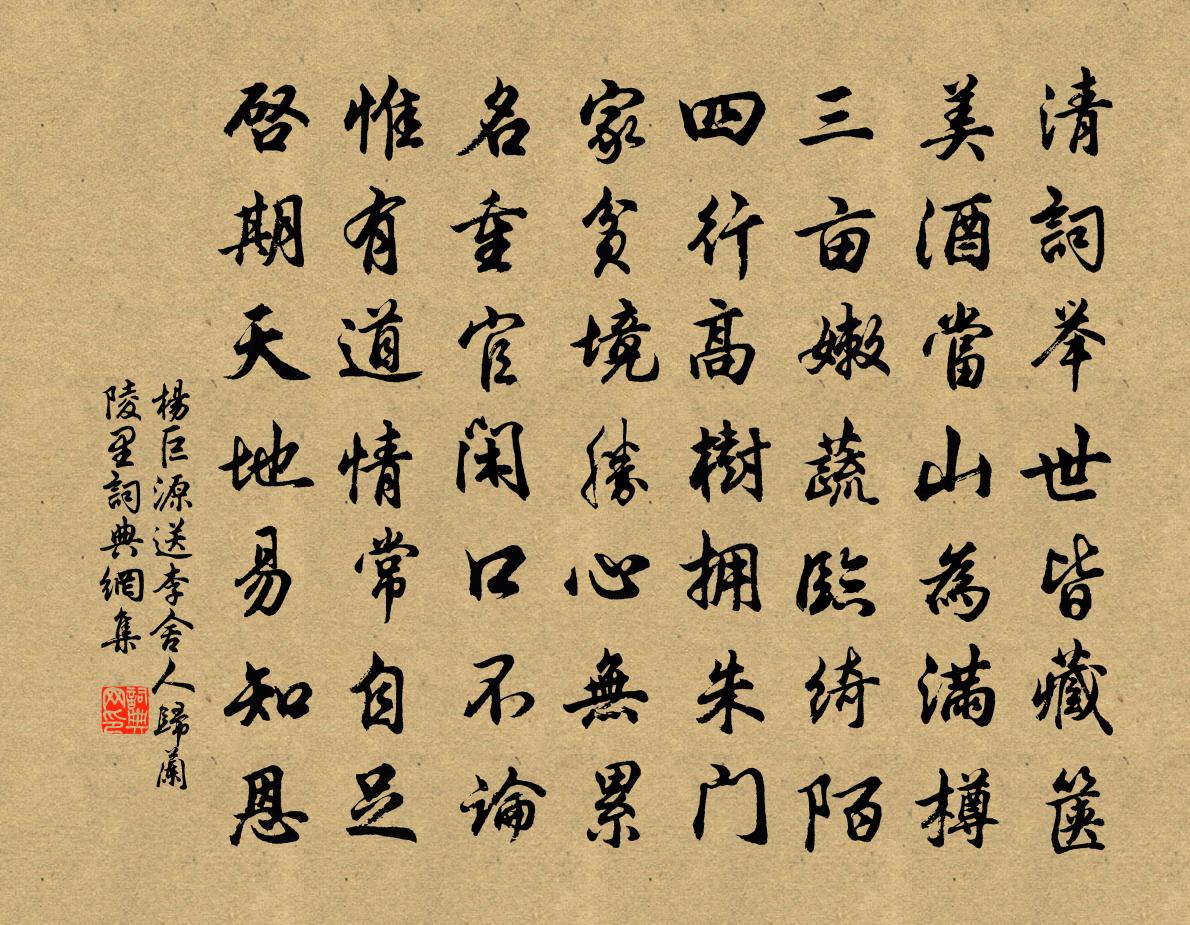 清詞举世皆藏箧
美酒當山為满樽
三亩嫩蔬臨绮陌
四行高樹拥朱门
家貧境勝心無累
名重官闲口不論
惟有道情常自足
启期天地易知恩
楊巨源送李舍人歸蘭
陵里詞典網集
詞典网印